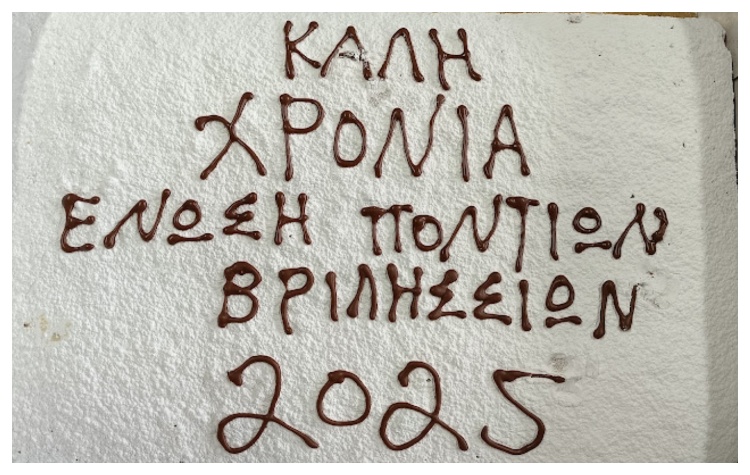 ΚΑΛΗ
ΧΡΟΝΙΑ
ΕΝΩΣΗ ΠΟΝΤΙΩΝ
ΒΡΙΛΗΣΣΙΩΝ
2025